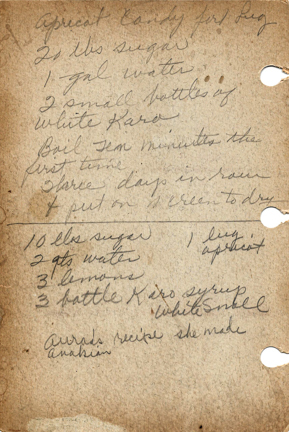 Apricot Candy for 1 lug
20 lbs sugar
1 gal water
2 small bottles of
white Karo
Boil Ten minutes the
first time
Three days in row
& put on screen to dry
10 lbs sugar 1 lug
apricot
2 qts water
3 lemons
3 bottle Karo syrup
white small
recipe she made